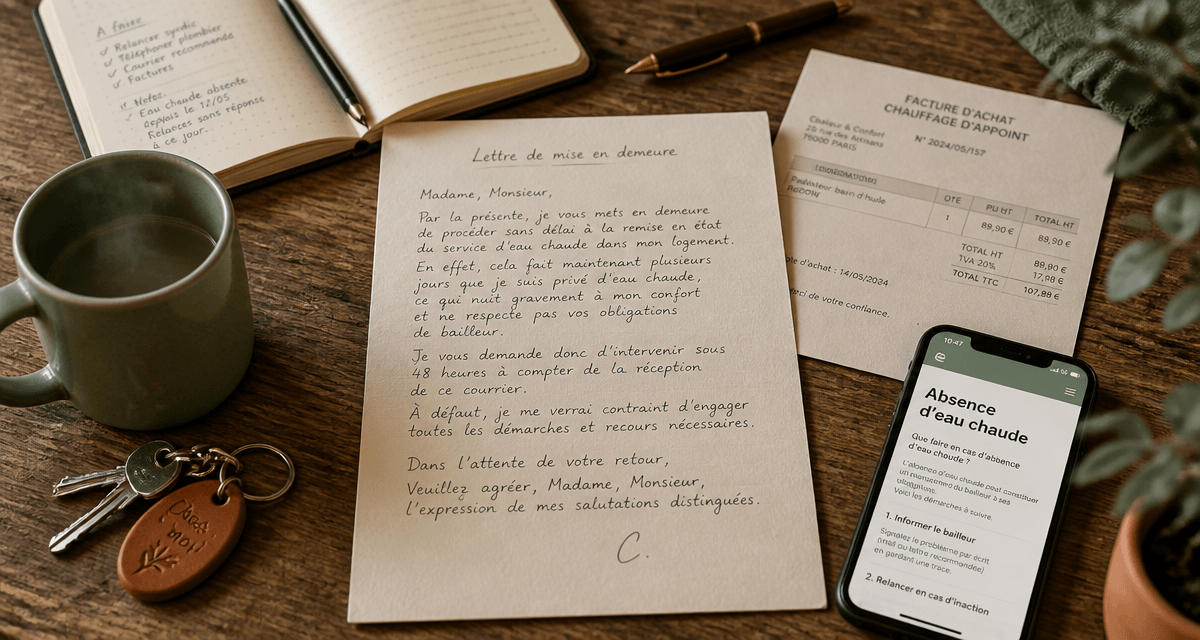 À faire
✓ Relancer syndic
✓ Téléphoner plombier
✓ Courrier recommandé
✓ Factures
Notes.
✓ Eau chaude absente
depuis le 12/05
Relances sans réponse
à ce jour.
Lettre de mise en demeure
Madame, Monsieur,
Par la présente, je vous mets en demeure
de procéder sans délai à la remise en état
du service d'eau chaude dans mon logement.
En effet, cela fait maintenant plusieurs
jours que je suis privé d'eau chaude,
ce qui nuit gravement à mon confort
et ne respecte pas vos obligations
de bailleur.
Je vous demande donc d'intervenir sous
48 heures à compter de la réception
de ce courrier.
À défaut, je me verrai contraint d'engager
toutes les démarches et recours nécessaires.
Dans l'attente de votre retour,
Veuillez agréer, Madame, Monsieur,
l'expression de mes salutations distinguées.
C.
FACTURE D'ACHAT
CHAUFFAGE D'APPOINT
Chaleur & Confort
28 rue des Artisans
75000 PARIS
N° 2024/05/157
QTE PU HT TOTAL HT
bain d'huile
1 89,90 € 89,90 €
TOTAL HT 89,90 €
TVA 20% 17,98 €
TOTAL TTC 107,88 €
d'achat : 14/05/2024
de votre confiance.
moi
10:47
e
Absence
d'eau chaude
Que faire en cas d'absence
d'eau chaude ?
L'absence d'eau chaude peut constituer
un manquement du bailleur à ses
obligations.
Voici les démarches à suivre.
1. Informer le bailleur
Signalez le problème par écrit
(mail ou lettre recommandée)
en gardant une trace.
2. Relancer en cas d'inaction